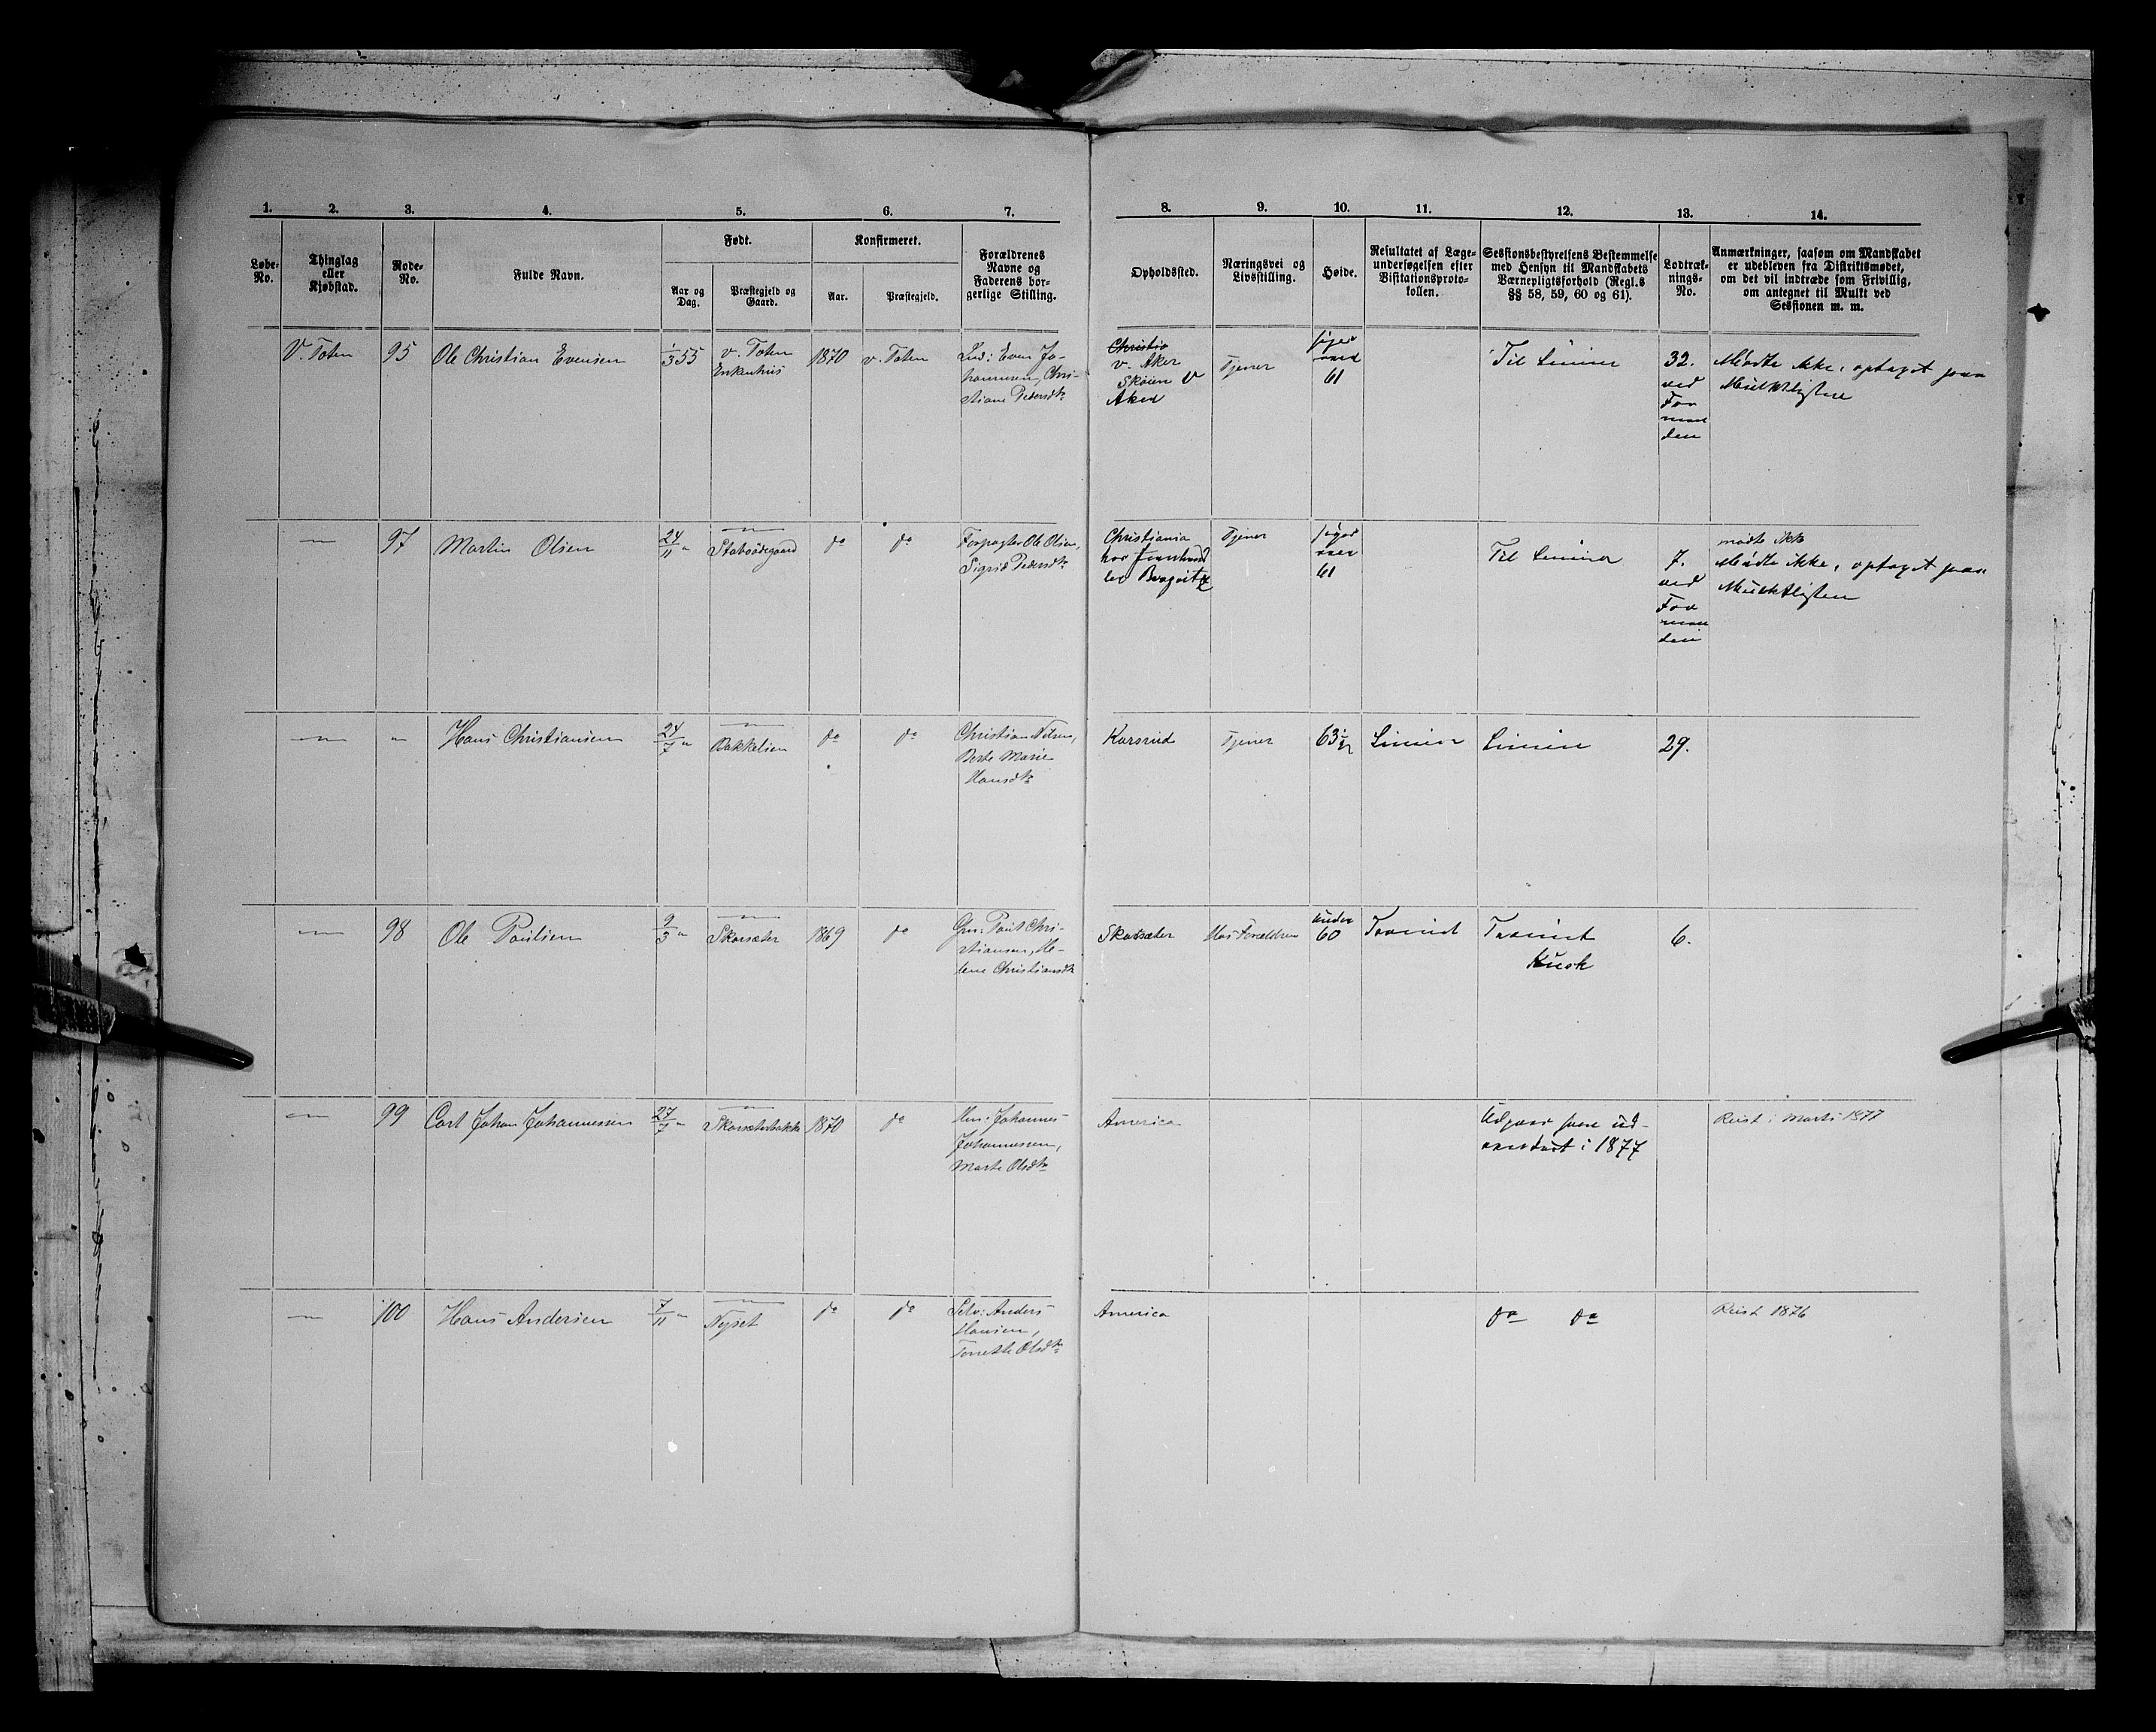 1. 2. 3. 4. 5. 6. 7. 8. 9. 10. 11. 12. 13. 14.
Løbe-
No.
Thinglag
eller
Kjøbstad.
Rode-
No.
Fulde Navn.
Født.
Aar og
Dag.
Præstegjeld og
Gaard.
Konfirmeret.
Aar.
Præstegjeld.
Forældrenes
Navne og
Faderens bor-
gerlige Stilling.
Opholdssted.
Næringsvei og
Livsstilling.
Høide.
Resultatet af Læge-
undersøgelsen efter
Visitationsproto-
kollen.
Sessionsbestyrelsens Bestemmelse
med Hensyn til Mandskabets
Værnepligtsforhold (Regl.s
§§ 58, 59, 60 og 61).
Lodtræk-
nings-
No.
Anmærkninger, saasom om Mandskabet
er udebleven fra Distriktsmødet,
om det vil indtræde som Frivillig,
om antegnet til Mulkt ved
Sessionen m. m.
V. Toten
95
Ole Christian Evensen
1/3 55
V. Toten
Enkenhus
1870
V. Toten
Ind: Even Jo-
hannesen, Chri-
stiane Pedersdtr
Christia
V. Aker
Skøien V
Aker
Tjener
61
Til Linien
32.
ved
For
man
den
Mødte ikke, optaget paa
Mulktlisten
—
97
Martin Olsen
24/11 "
—
Stabo
do
do
Forpagter Ole Olsen,
Sigrid Pedersdtr
Christiania
hos
Tjener
61
Til Linien
7.
ved
For
man
den
mødte ikke
Mødte ikke, optaget paa
Mulktlisten
—
"
Hans Christiansen
24/7 "
—
Bakkelien
do
do
Christian Nilsen,
Berte Marie
Hansdtr
Karsrud
Tjener
63 1/2
Linien
Linien
29.
—
98
Ole Paulsen
9/3 "
—
Skarsæter
1869
do
Gm: Paul Chri-
stiansen, He-
lene Christiansdtr
Skarsæter
Hos Forældrene
under
60
Trainet
Trainet
Kusk
6.
—
99
Carl Johan Johannessen
27/7 "
—
Skarsæterbakke
1870
do
Hm: Johannes
Johannessen,
Marte Olsdtr
America
Udgaar som ud-
vandret i 1877
Reist i Marts 1877
—
100
Hans Andersen
7/11 "
—
Nyset
do
do
Selv: Anders
Hansen,
Olsdtr
America
do do
Reist 1876